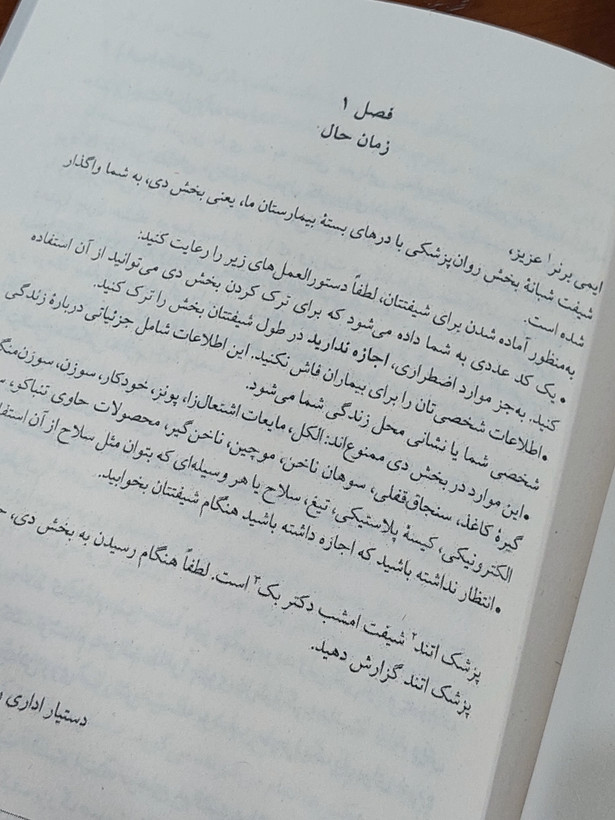 فصل ۱
زمان حال
ایمی برنر۱ عزیز،
شیفت شبانهٔ بخش روان‌پزشکی با درهای بستهٔ بیمارستان ما، یعنی بخش دی، به شما واگذار
شده است.
به‌منظور آماده شدن برای شیفتتان، لطفاً دستورالعمل‌های زیر را رعایت کنید:
• یک کد عددی به شما داده می‌شود که برای ترک کردن بخش دی می‌توانید از آن استفاده
کنید. به‌جز موارد اضطراری، اجازه ندارید در طول شیفتتان بخش را ترک کنید.
• اطلاعات شخصی‌تان را برای بیماران فاش نکنید. این اطلاعات شامل جزئیاتی دربارهٔ زندگی
شخصی شما یا نشانی محل زندگی شما می‌شود.
• این موارد در بخش دی ممنوع‌اند: الکل، مایعات اشتعال‌زا، پونز، خودکار، سوزن،
گیرهٔ کاغذ، سنجاق‌قفلی، سوهان ناخن، موچین، ناخن‌گیر، محصولات حاوی تنباکو،
الکترونیکی، کیسهٔ پلاستیکی، تیغ، سلاح یا هر وسیله‌ای که بتوان مثل سلاح از آن
• انتظار نداشته باشید که اجازه داشته باشید هنگام شیفتتان بخوابید.
پزشک اتند۲ شیفت امشب دکتر بک۳ است. لطفاً هنگام رسیدن به بخش دی،
پزشک اتند گزارش دهید.
دستیار اداری